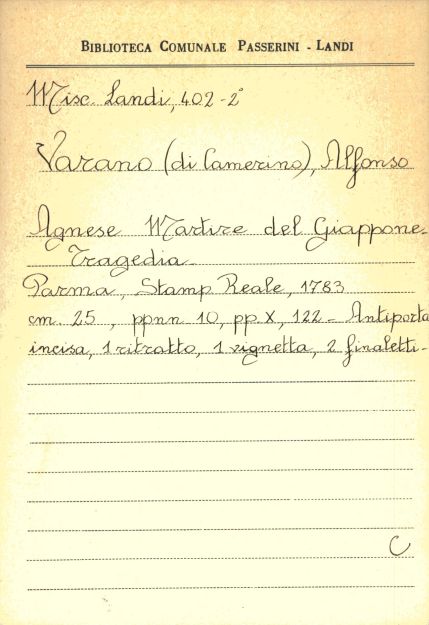 BIBLIOTECA COMUNALE PASSERINI - LANDI
Misc. Landi, 402-2°
Varano (di Camerino), Alfonso
Agnese Martire del Giappone-
Tragedia
Parma, Stamp. Reale, 1783
cm. 25, ppnn 10, pp. X, 122 - Antiporta
incisa, 1 ritratto, 1 vignetta, 2 finaletti-
C